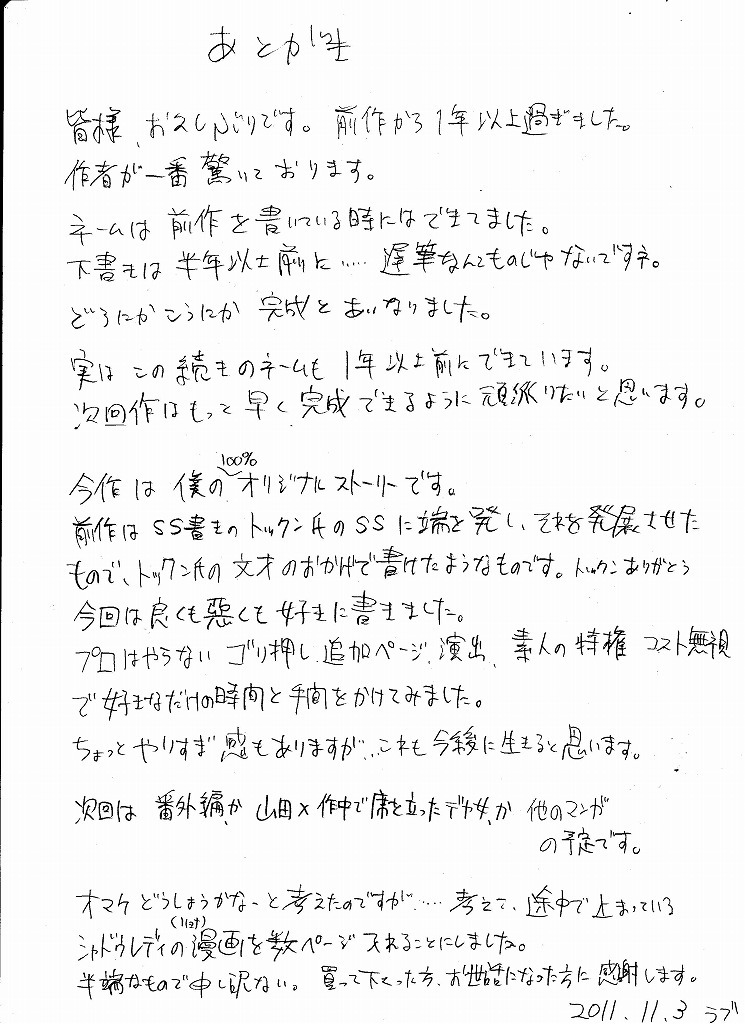 あとがき
皆様、お久しぶりです。前作から1年以上過ぎました。
作者が一番驚いております。
ネームは前作を書いている時にはできてました。
下書きは半年以上前に‥‥遅筆なんてものじゃないですネ。
どうにかこうにか完成とあいなりました。
実はこの続きのネームも1年以上前にできています。
次回作はもっと早く完成できるように頑張りたいと思います。
今作は僕の100%オリジナルストーリーです。
前作はSS書きのトックン氏のSSに端を発し、それを発展させた
もので、トックン氏の文才のおかげで書けたようなものです。トックンありがとう
今回は良くも悪くも好きに書きました。
プロはやらないゴリ押し、追加ページ、演出、素人の特権コスト無視
で好きなだけの時間と手間をかけてみました。
ちょっとやりすぎ感もありますが、これも今後に生きると思います。
次回は番外編か、山田×作中で席を立ったデカ女、か他のマンガ
の予定です。
オマケどうしようかなーと考えたのですが‥‥考えて、途中で止まっている
シャドウレディの漫画を数ページ入れることにしました。
半端なもので申し訳ない。買って下さった方、お世話になった方に感謝します。
2011.11.3 ラブ